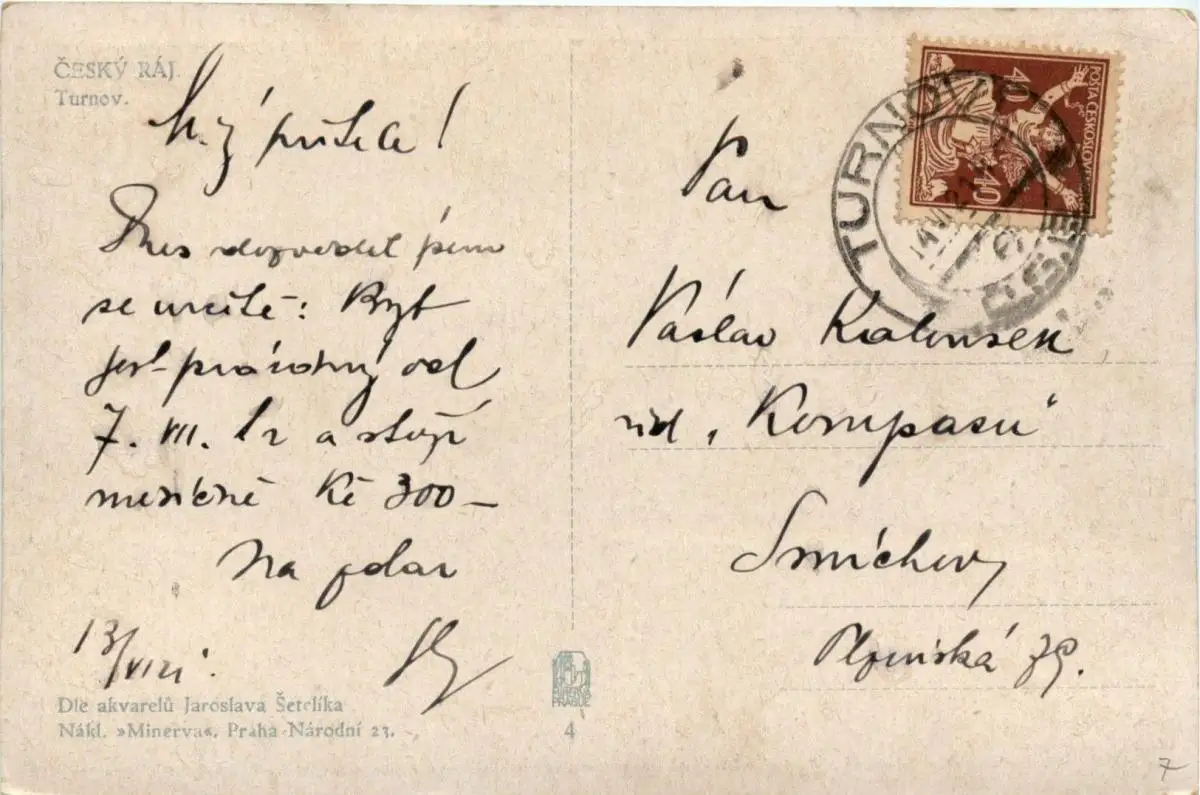 ČESKÝ RÁJ.
Turnov.
Milý příteli!
Dnes dozvěděl jsem
se určitě: Byt
jest prázdný od
7. VII. t.r a stojí
mesíčně Kč 300—
Na zdar
13/VI
Dle akvarelů Jaroslava Šetelíka
Nákl. »Minerva«, Praha-Národní 23.
4
POŠTA ČESKOSLOV
40
40
TURNOV
Pan
Václav
řid. „Kompasu"
Smíchov
Plzeňská 39.
7